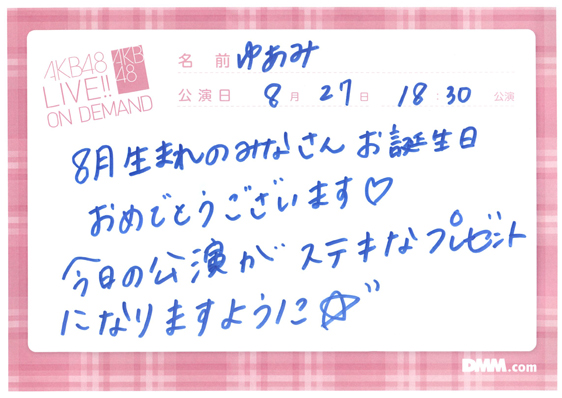 AKB48
LIVE!!
ON DEMAND
AKB
48
名 前 ゆあみ
公演日 8月27日 18:30 公演
8月生まれのみなさん お誕生日
おめでとうございます♡
今日の公演が ステキなプレゼント
になりますように☆
DMM.com